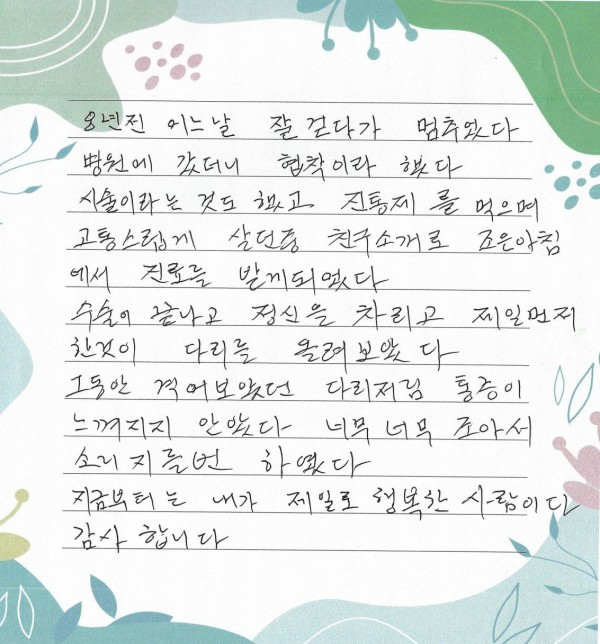 8년전 어느날 잘 걷다가 멈추었다
병원에 갔더니 협착이라 했다
시술이라는 것도 했고 진통제를 먹으며
고통스럽게 살던중 친구소개로 조은아침
에서 진료를 받게되었다
수술이 끝나고 정신을 차리고 제일먼저
한것이 다리를 올려보았다
그동안 격어보았던 다리저림 통증이
느껴지지 안았다 너무너무 조아서
소리지를번 하였다
지금부터는 내가 제일로 행복한 사람이다
감사 합니다